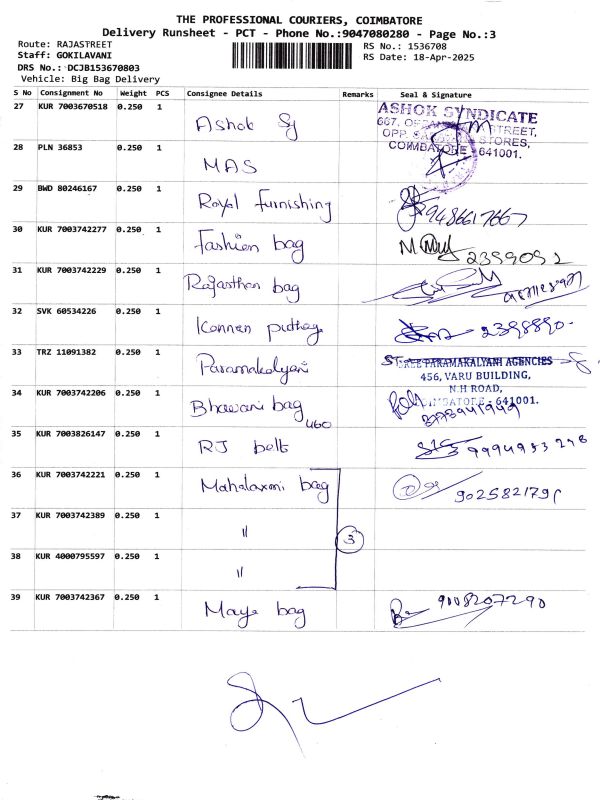 THE PROFESSIONAL COURIERS, COIMBATORE
Delivery Runsheet - PCT - Phone No.:9047080280 - Page No.:3
Route: RAJASTREET
Staff: GOKILAVANI
DRS No.: DCJB153670803
Vehicle: Big Bag Delivery
RS No.: 1536708
RS Date: 18-Apr-2025
S No Consignment No Weight PCS Consignee Details Remarks Seal & Signature
27 KUR 7003670518 0.250 1 Ashok Sy
ASHOK SYNDICATE
667, STREET,
OPP. STORES,
COIMBATORE - 641001.
28 PLN 36853 0.250 1 MAS
29 BWD 80246167 0.250 1 Royal furnishing 9486617667
30 KUR 7003742277 0.250 1 Fashion bag 2399092
31 KUR 7003742229 0.250 1 Rajasthan bag
32 SVK 60534226 0.250 1 Kannan 2398890
33 TRZ 11091382 0.250 1 Paramakalyani
SREE PARAMAKALYANI AGENCIES
456, VARU BUILDING,
N.H ROAD,
COIMBATORE - 641001.
34 KUR 7003742206 0.250 1 Bhavani bag 460
35 KUR 7003826147 0.250 1 RJ belt 9994933298
36 KUR 7003742221 0.250 1 Mahalaxmi bag 9025821791
37 KUR 7003742389 0.250 1 "
3
38 KUR 4000795597 0.250 1 "
39 KUR 7003742367 0.250 1 Maya bag 9008207290